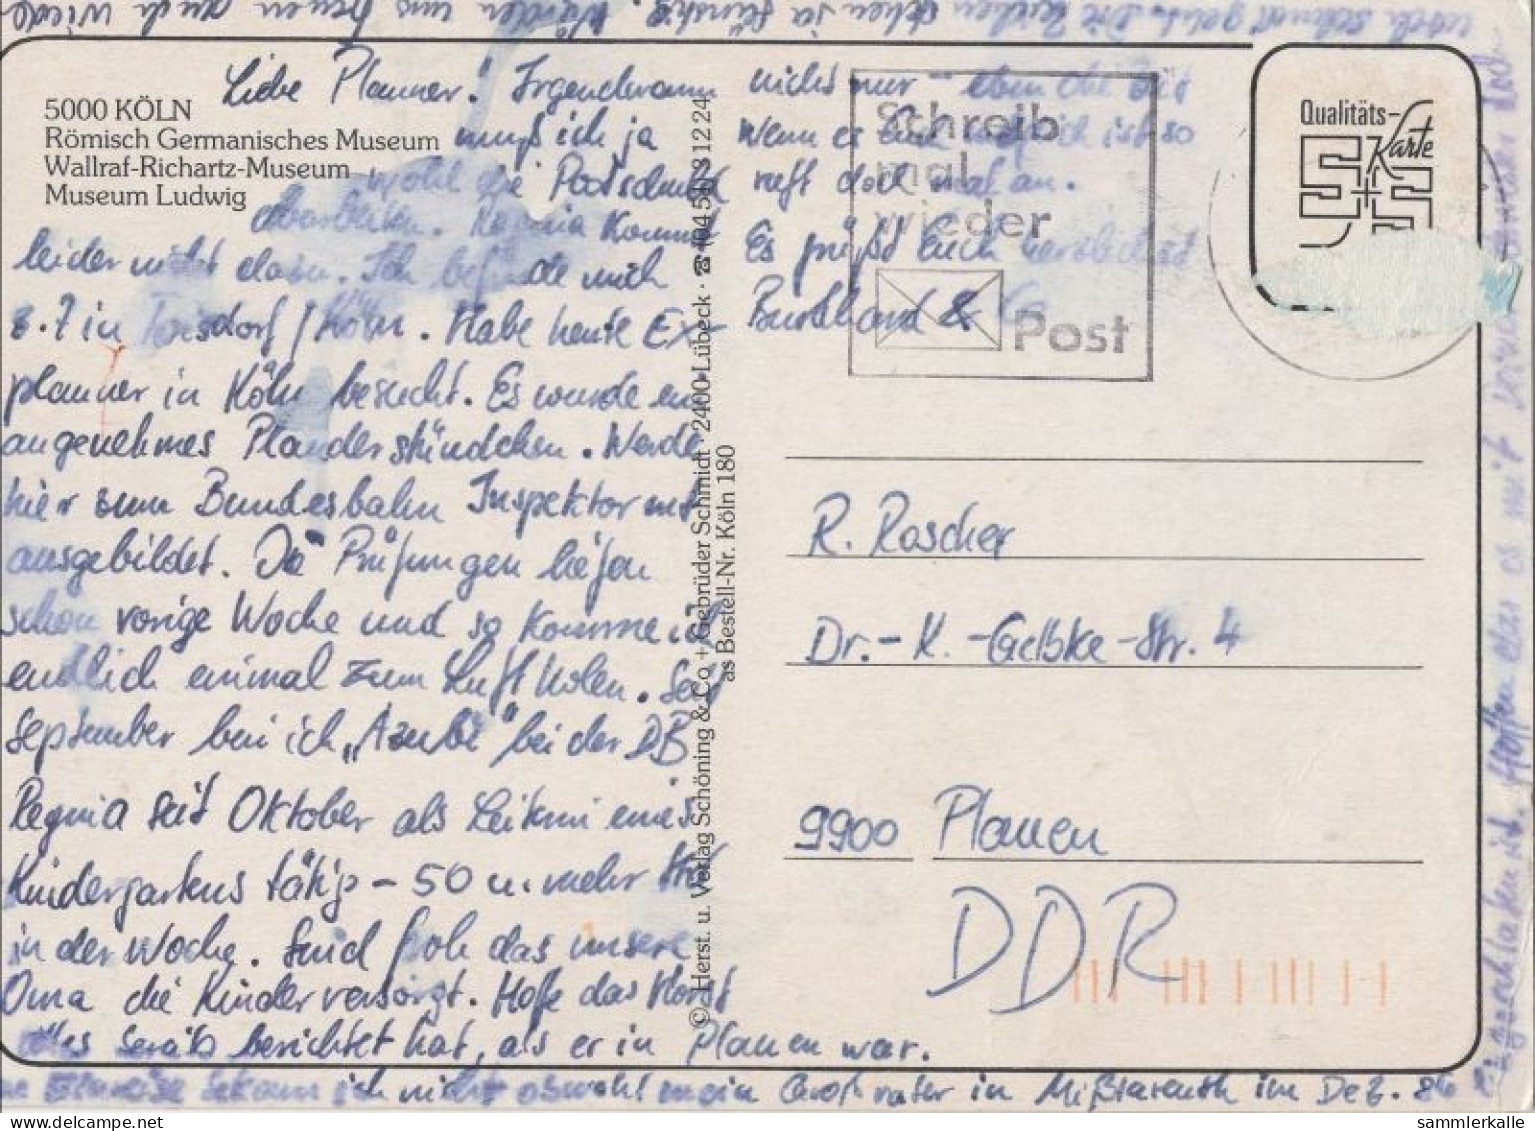 5000 KÖLN
Römisch Germanisches Museum
Wallraf-Richartz-Museum
Museum Ludwig
Liebe Plauner! Irgendwann
muß ich ja
wohl die Postschuld
abarbeiten. Regina kommt
leider nicht dazu. Ich befinde mich
z. Z in Troisdorf / Köln. Habe heute Ex-
plauner in Köln besucht. Es wurde ein
angenehmes Plauderstündchen. Werde
hier zum Bundesbahn Inspektor mit
ausgebildet. Die Prüfungen liefen
schon vorige Woche und so komme ich
endlich einmal zum Luft holen. Seit
September bin ich „Azubi" bei der DB
Regina seit Oktober als Leiterin eines
Kindergartens tätig - 50 u. mehr Std
in der Woche. Sind froh das unsere
Oma die Kinder versorgt. Hoffe das Horst
alles berichtet hat, als er in Plauen war.
Einreise bekam ich nicht obwohl mein Großvater in Mißlareuth im Dez. 86
Hoffen das es mit
noch schmal geht. Die Zeichen stehen ja günstig. Würden uns freuen auch wieder
nicht nur - eben die Zeit
Wenn es Euch möglich ist so
ruft doch mal an.
Es grüßt Euch herzlichst
Burkhard &
© Herst. u. Verlag Schöning & Co + Gebrüder Schmidt · 2400 Lübeck · ☎
as Bestell-Nr. Köln 180
Schreib
mal
wieder
Post
Qualitäts-
Karte
S+S
R. Rascher
Dr.-K.-Gelbke-Str. 4
9900 Plauen
DDR
sammlerkalle